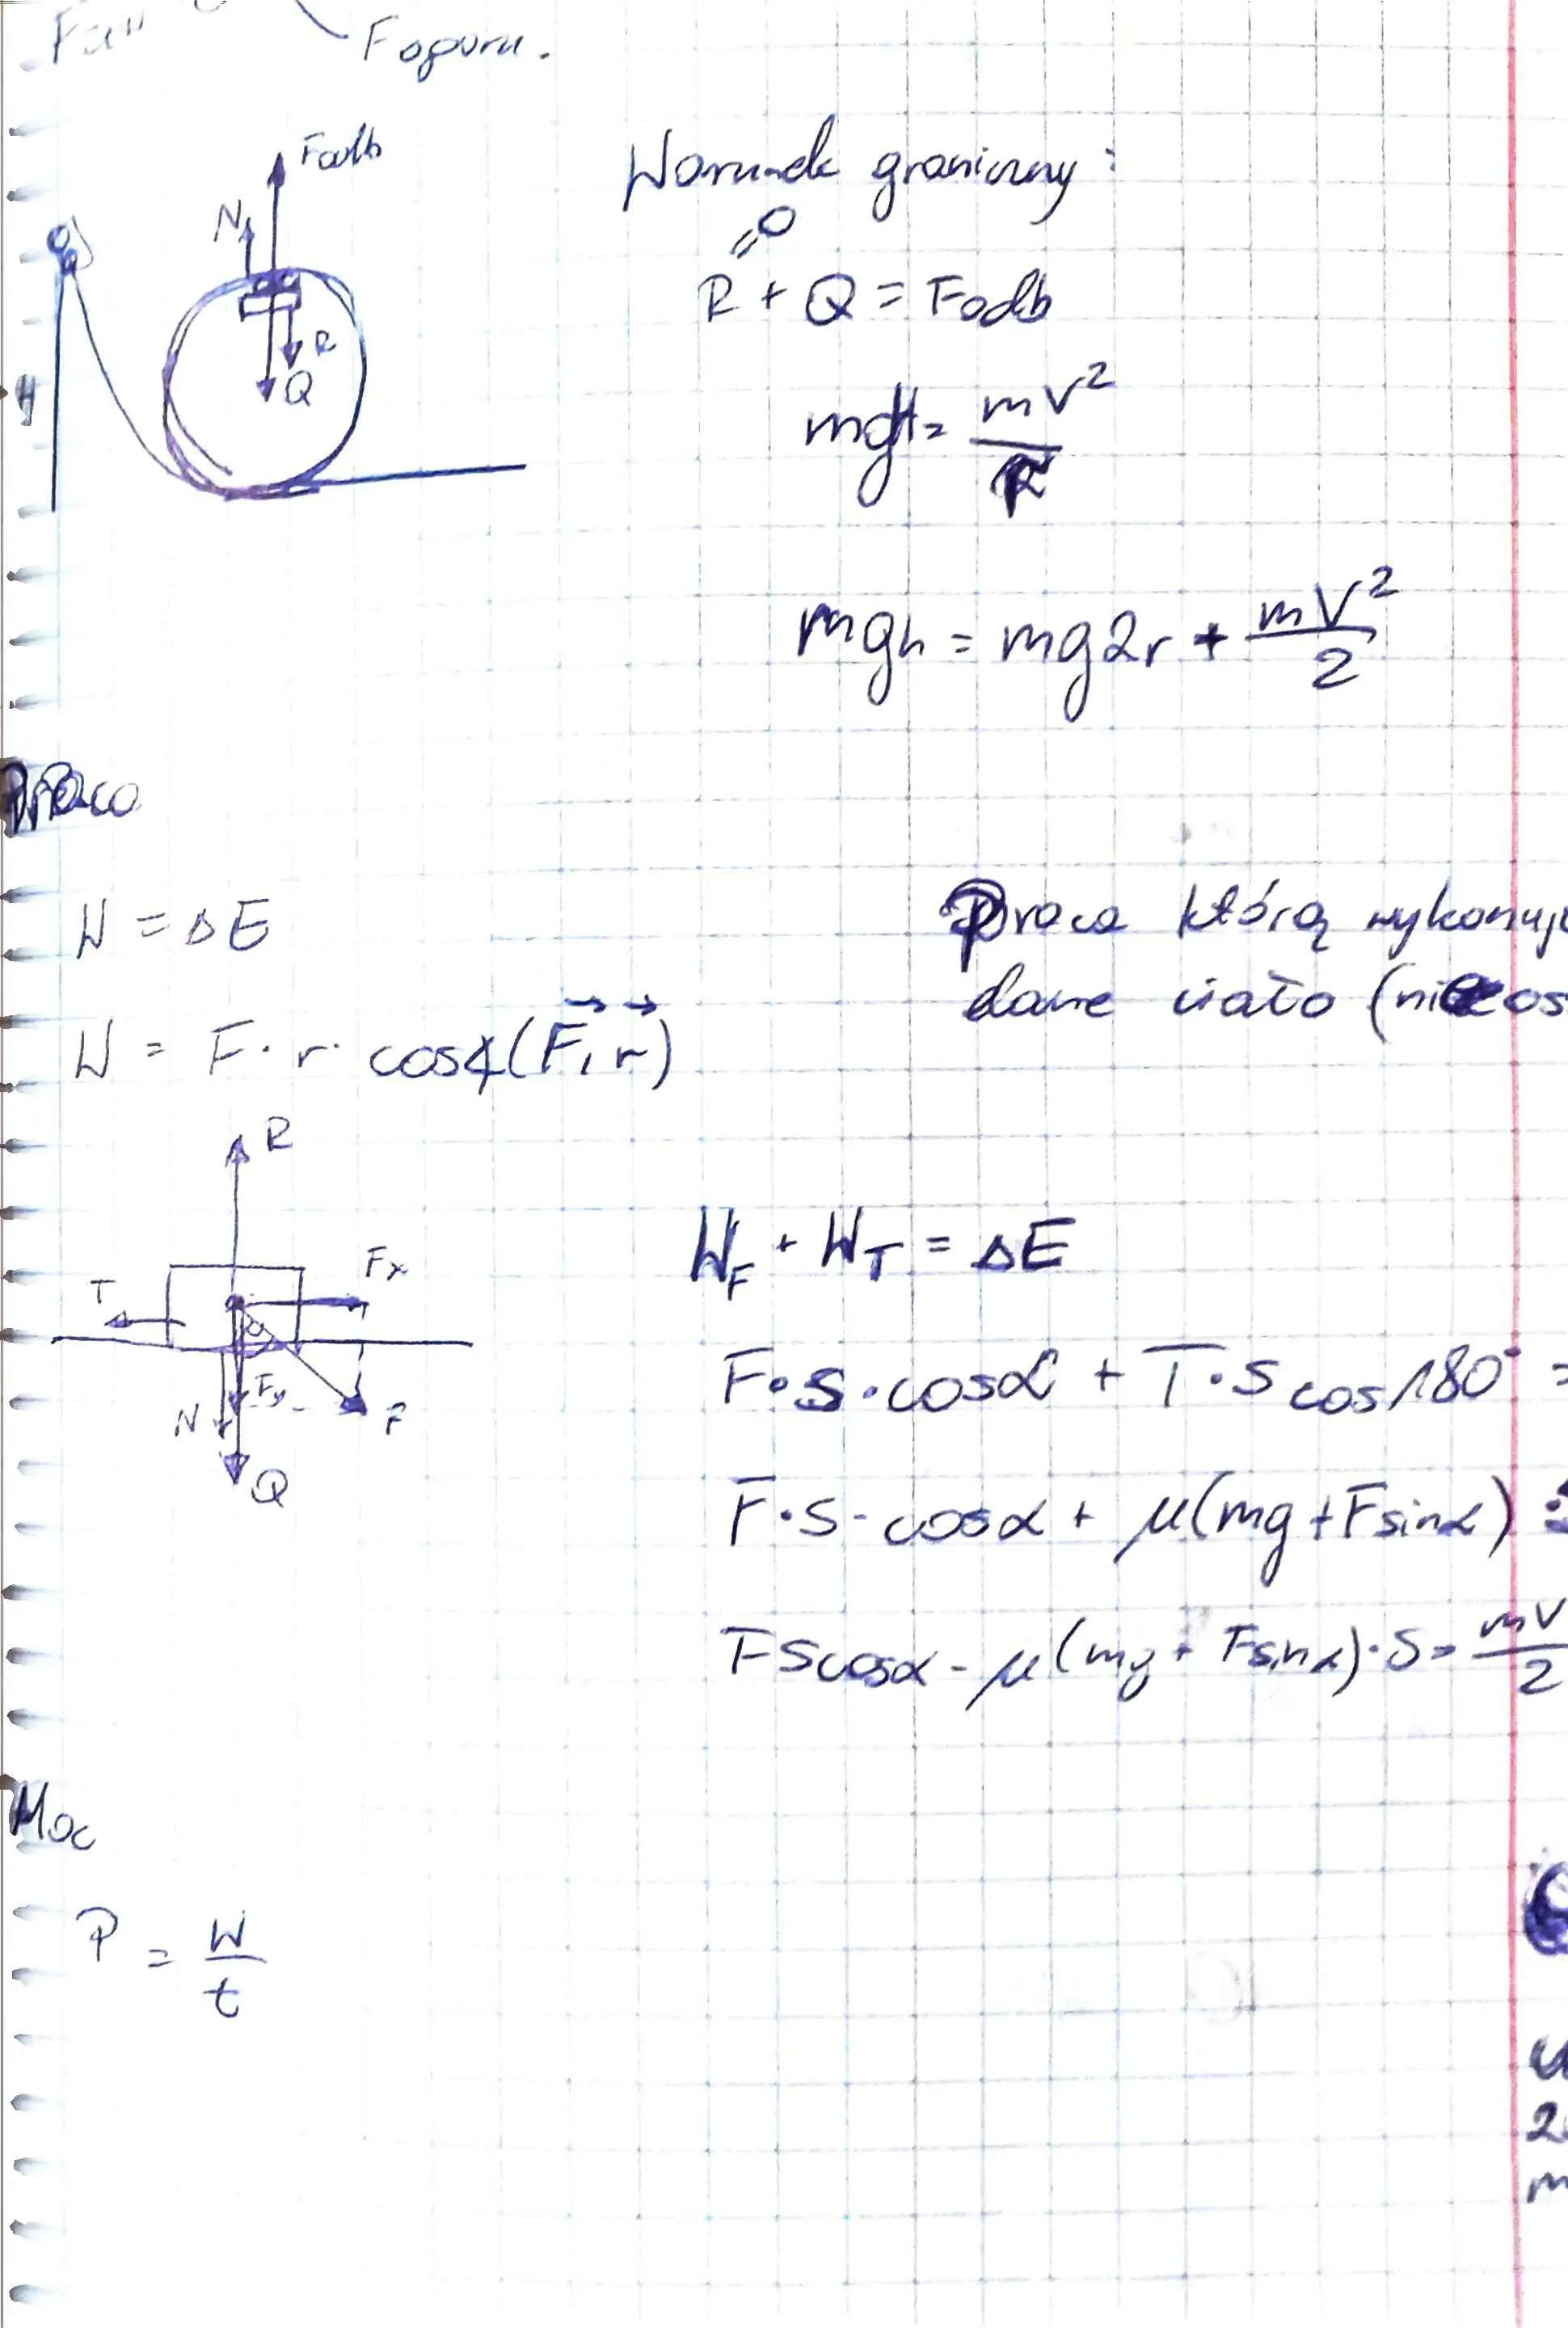 F oporu.
Fodb
N
R
Q
H
Warunek graniczny:
=0
R + Q = Fodb
mgH = mV²/r
mgh = mg2r + mV²/2
Praca
W = ΔE
W = F · r · cos∢(F⃗, r⃗)
Praca którą wykonuj
dane ciało
R
T
Fx
α
Fy
N
F
Q
W_F + W_T = ΔE
F · S · cosα + T · S cos 180° =
F · S · cosα + μ(mg + Fsinα) ·
FScosα - μ(mg + Fsinα) · S = mV/2
Moc
P = W/t